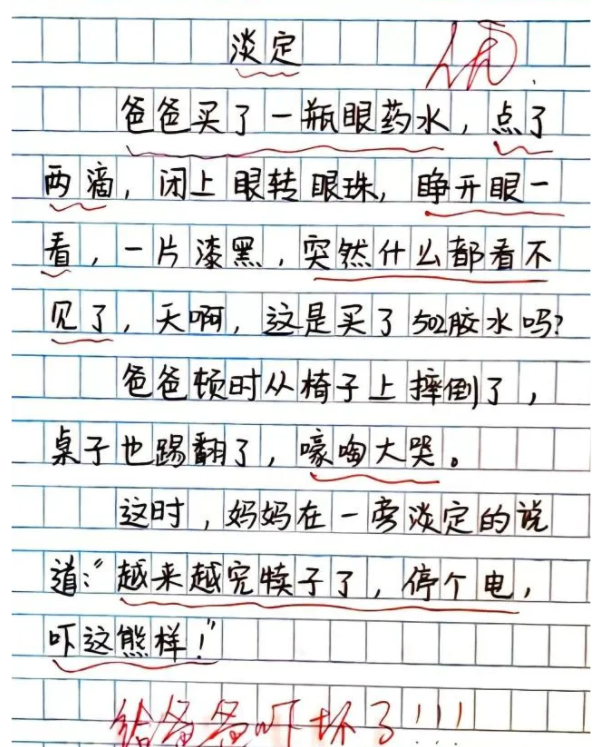 淡定
优
爸爸买了一瓶眼药水，点了
两滴，闭上眼转眼珠，睁开眼一
看，一片漆黑，突然什么都看不
见了，天啊，这是买了502胶水吗？
爸爸顿时从椅子上摔倒了，
桌子也踢翻了，嚎啕大哭。
这时，妈妈在一旁淡定的说
道："越来越完犊子了，停个电，
吓这熊样！"
给爸爸吓坏了!!!